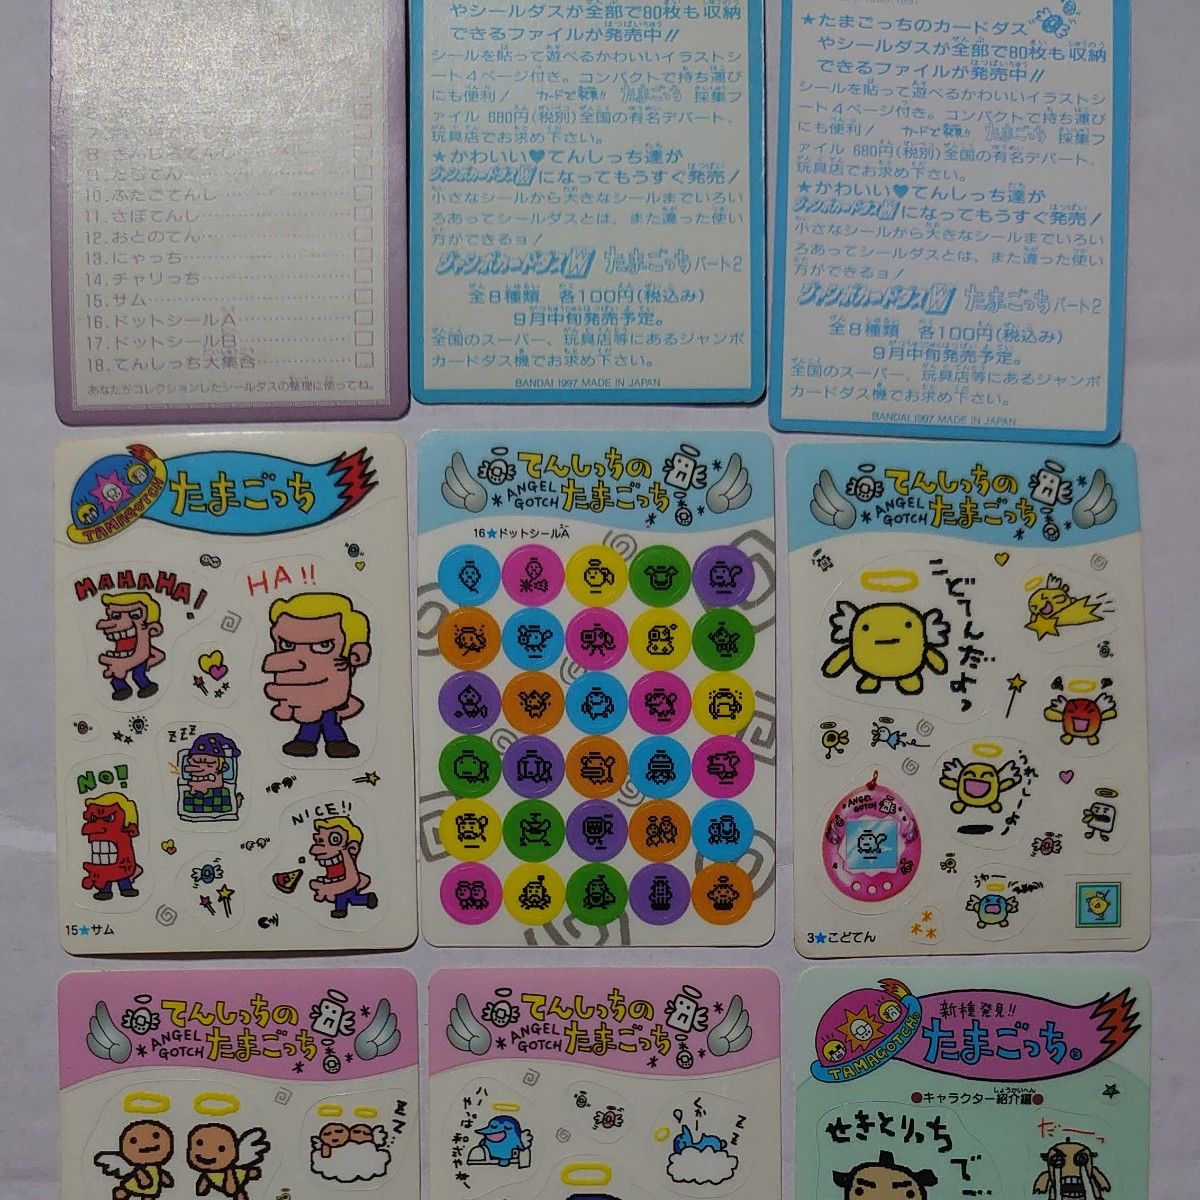 8.さんしょうてんし
9.たらてん
10.ふたごてんし
11.さぼてんし
12.おとのてん
13.にゃっち
14.チャリっち
15.サム
16.ドットシールA
17.ドットシールB
18.てんしっち大集合
あなたがコレクションしたシールダスの整理に使ってね。
やシールダスが全部で80枚も収納
できるファイルが発売中!!
シールを貼って遊べるかわいいイラストシ
ート4ページ付き。コンパクトで持ち運び
にも便利! カードで発見!! たまごっち 採集フ
ァイル 680円(税別)全国の有名デパート、
玩具店でお求め下さい。
★かわいい♥てんしっち達が
ジャンボカードダスWになってもうすぐ発売!
小さなシールから大きなシールまでいろい
ろあってシールダスとは、また違った使い
方ができるョ!
ジャンボカードダスW たまごっちパート2
全8種類 各100円(税込み)
9月中旬発売予定。
全国のスーパー、玩具店等にあるジャンボ
カードダス機でお求め下さい。
BANDAI 1997 MADE IN JAPAN
★たまごっちのカードダス
やシールダスが全部で80枚も収納
できるファイルが発売中!!
シールを貼って遊べるかわいいイラストシ
ート4ページ付き。コンパクトで持ち運び
にも便利! カードで発見!! たまごっち 採集フ
ァイル 680円(税別)全国の有名デパート、
玩具店でお求め下さい。
★かわいい♥てんしっち達が
ジャンボカードダスWになってもうすぐ発売!
小さなシールから大きなシールまでいろい
ろあってシールダスとは、また違った使い
方ができるョ!
ジャンボカードダスW たまごっちパート2
全8種類 各100円(税込み)
9月中旬発売予定。
全国のスーパー、玩具店等にあるジャンボ
カードダス機でお求め下さい。
BANDAI 1997 MADE IN JAPAN
TAMAGOTCH
たまごっち
HAHAHA!
HA!!
ZZZ
NO!
NICE!!
15★サム
てんしっちの
ANGEL
GOTCH
たまごっち
16★ドットシールA
てんしっちの
ANGEL
GOTCH
たまごっち
こどてんだよっ
うれーしーよ
ANGEL
GOTCH
うわー
3★こどてん
てんしっちの
ANGEL
GOTCH
たまごっち
ZZZ...
てんしっちの
ANGEL
GOTCH
たまごっち
くかー
ZZZ
TAMAGOTCH
新種発見!!
たまごっち®
●キャラクター紹介編●
しょうかいへん
せきとりっち
で
だーっ